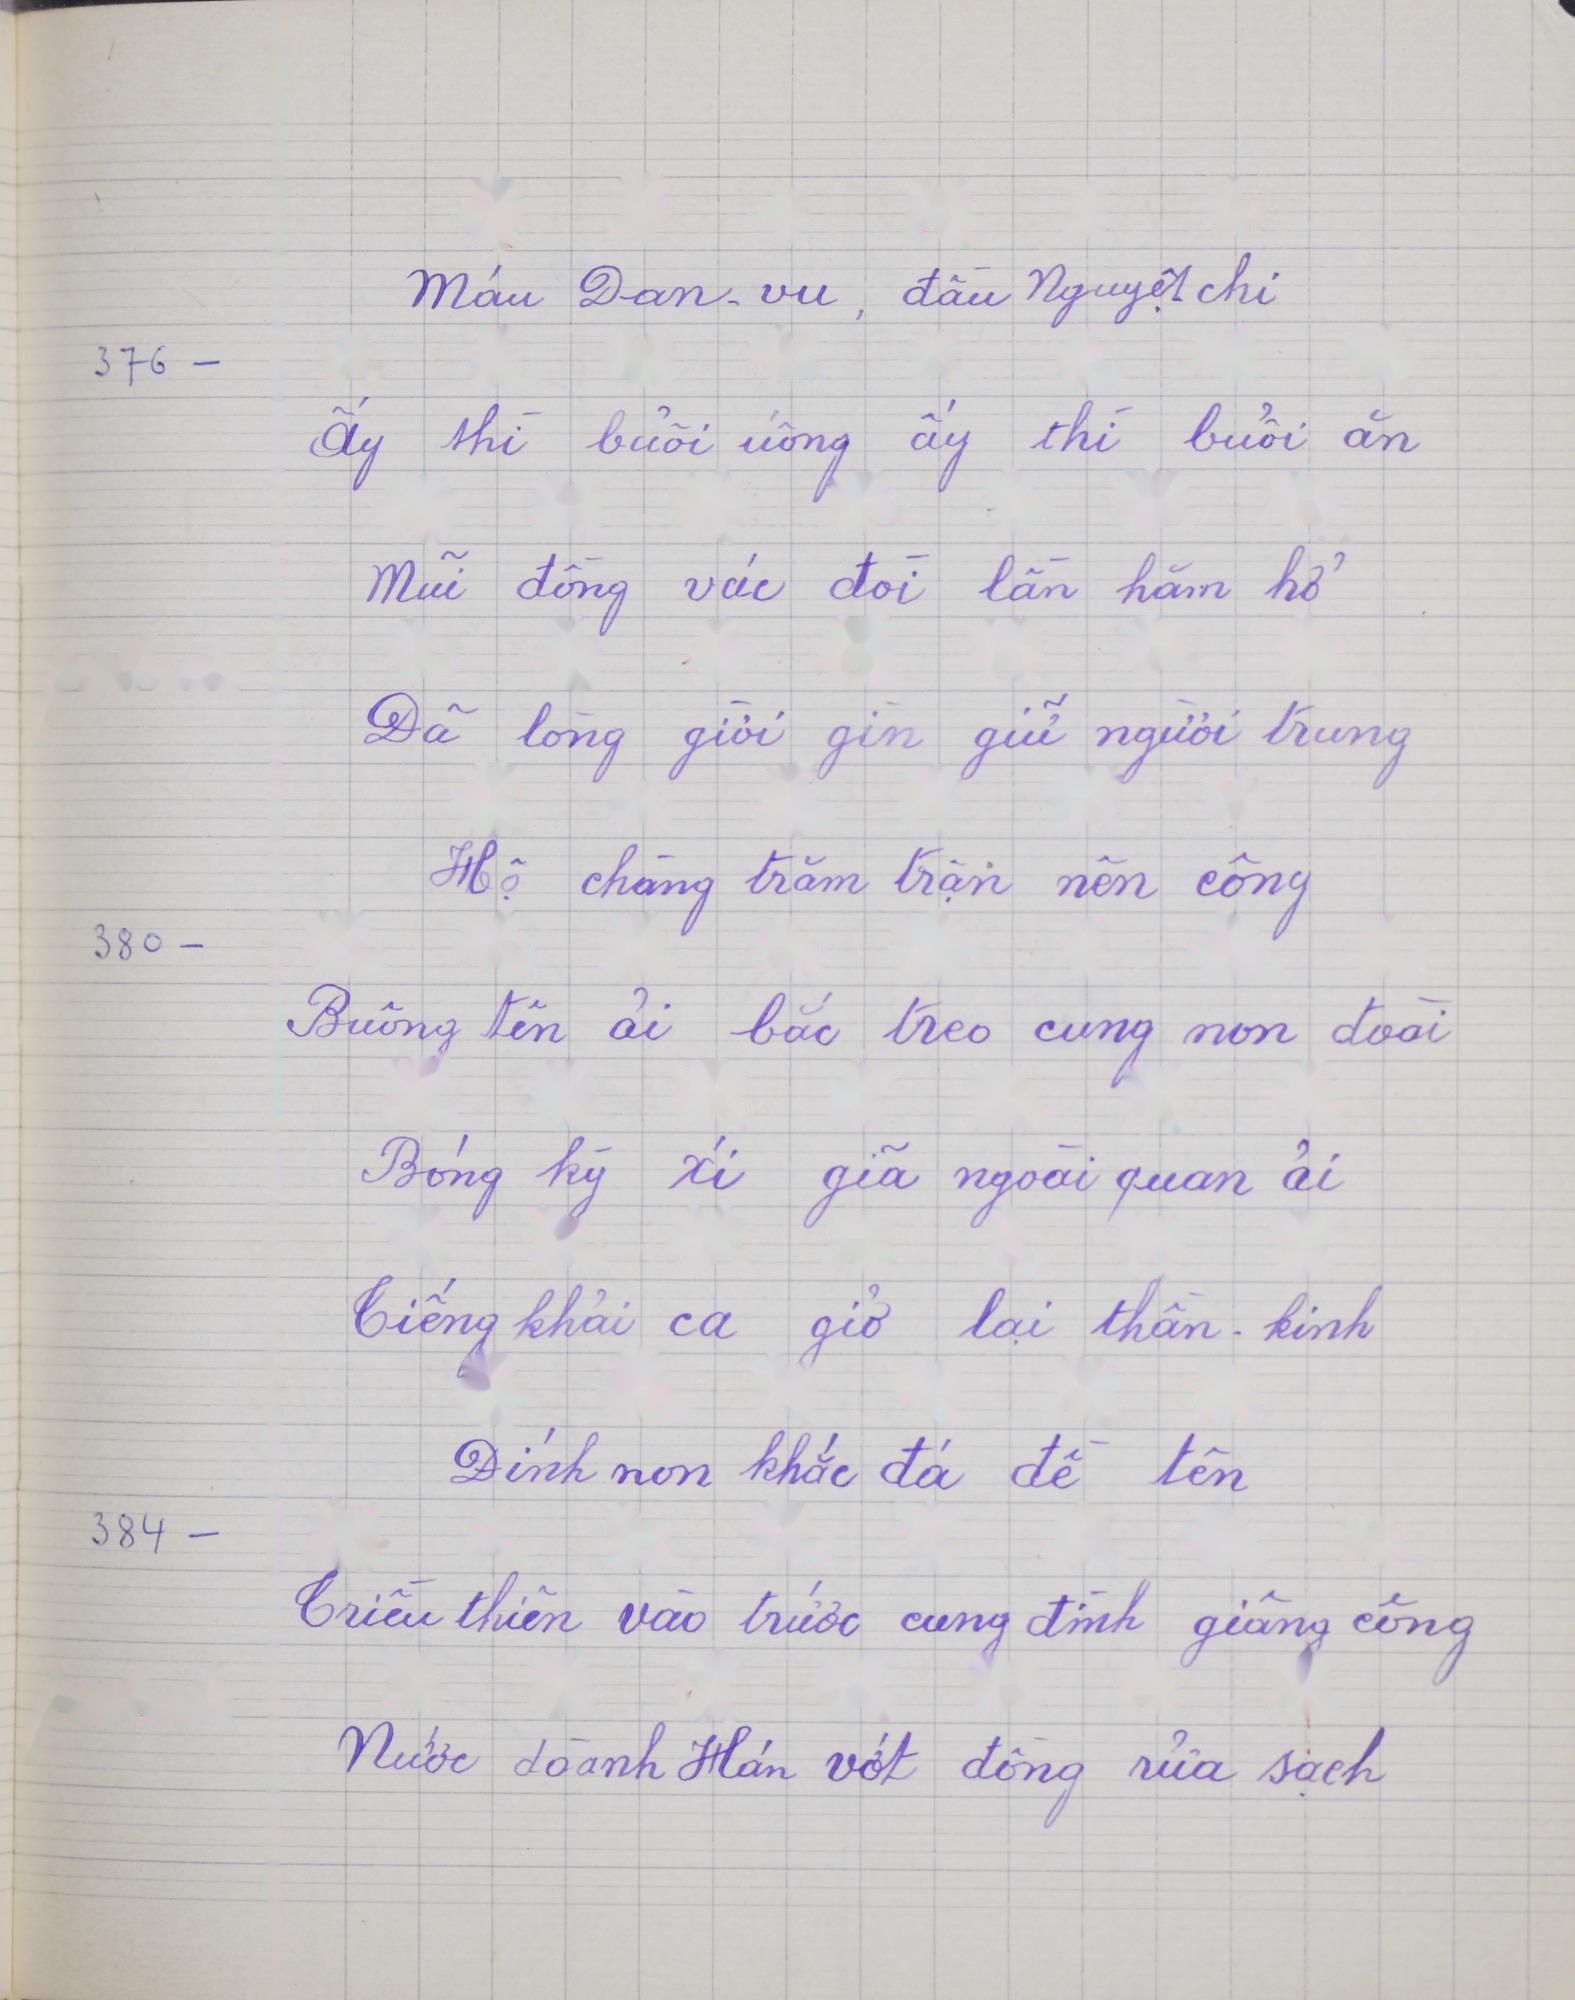 Máu Đan-vu, đầu Nguyệt chi
376 –
Ấy thì buổi uống ấy thì buổi ăn
Mũi đòng vác đòi lần hăm hở
Đã lòng giời gìn giữ người trung
Hộ chàng trăm trận nên công
380 –
Buông tên ải bắc treo cung non đoài
Bóng kỳ xí giã ngoài quan ải
Tiếng khải ca giở lại thần-kinh
Đỉnh non khắc đá đề tên
384 –
Triều thiên vào trước cung đình giâng công
Nước doành Hán vớt đòng rửa sạch